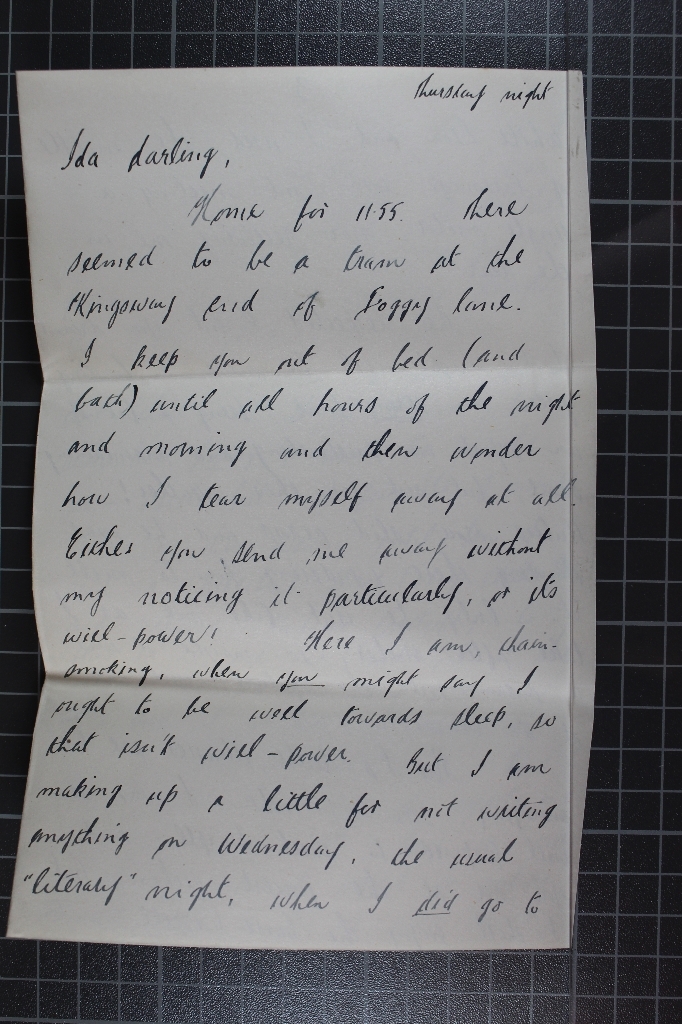 Thursday night
Ida darling,
Home for 11.55. There
seemed to be a tram at the
Kingsway end of Foggy Lane.
I keep you out of bed (and
bath) until all hours of the night
and morning and then wonder
how I tear myself away at all.
Either you send me away without
my noticing it particularly, or its
will-power! Here I am, chain-
smoking, when you might say I
ought to be well towards sleep, so
that isn't will-power. But I am
making up a little for not writing
anything on Wednesday, the usual
"literary" night, when I did go to